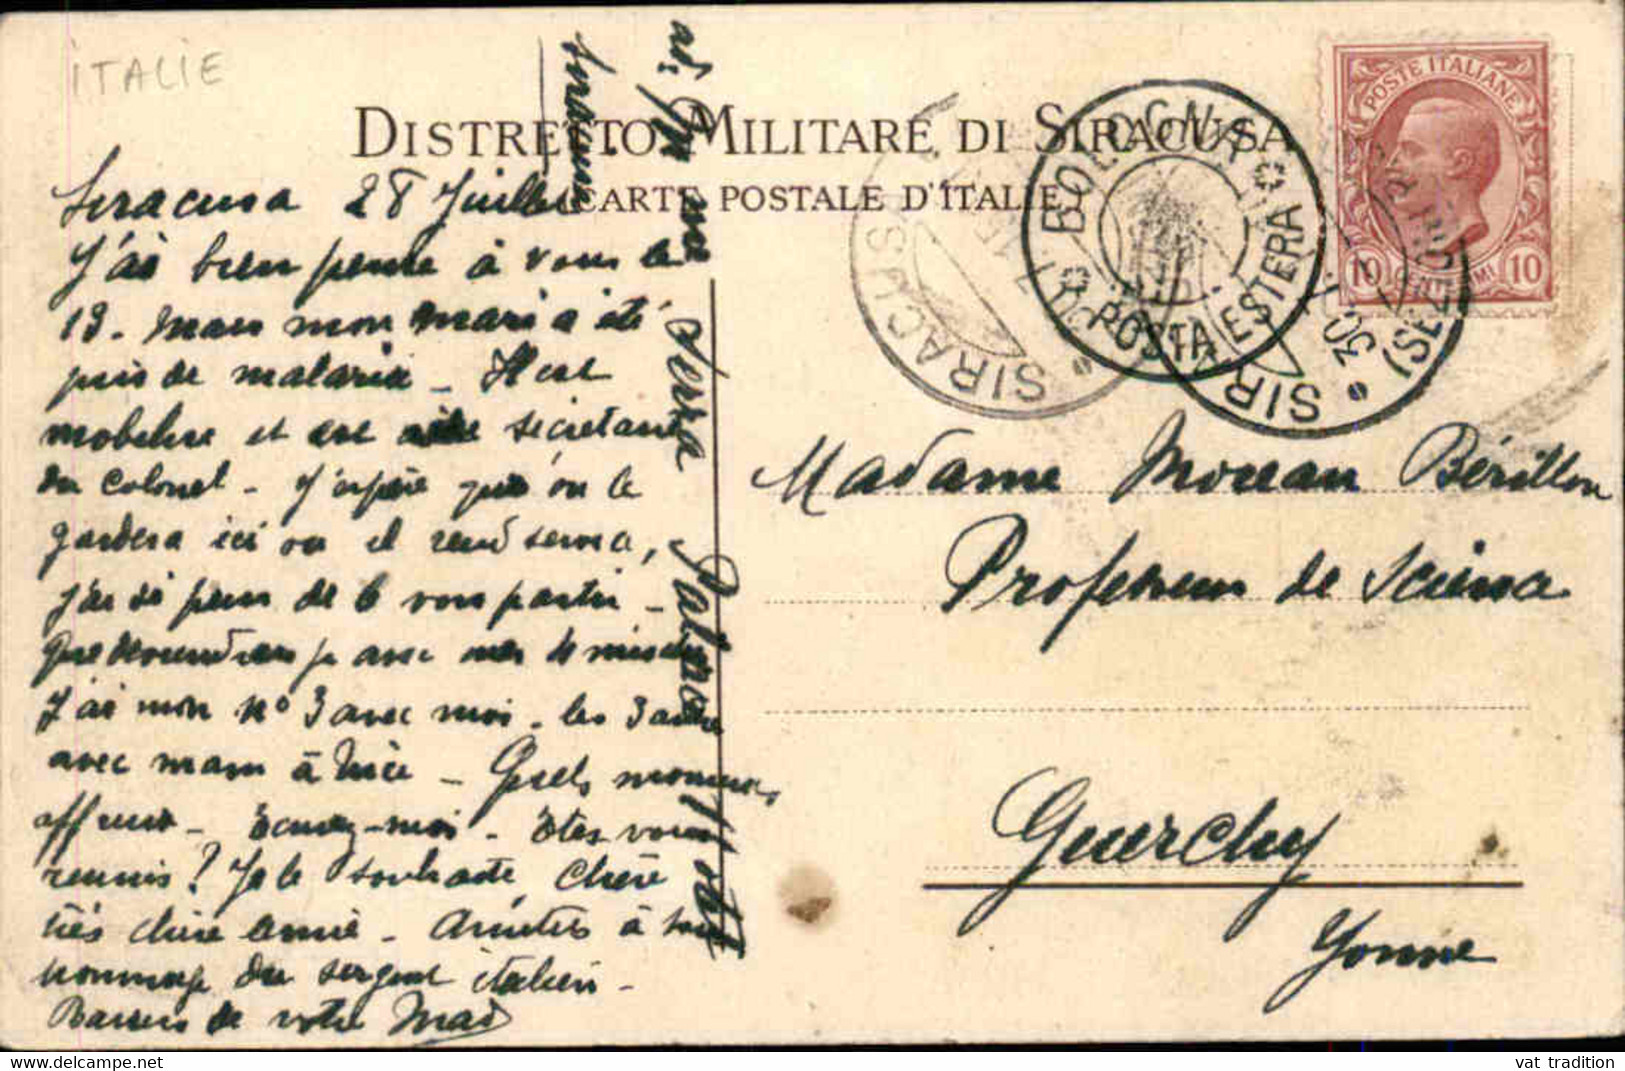 ITALIE
DISTRETTO MILITARE DI SIRACUSA
(CARTE POSTALE D'ITALIE)
POSTE ITALIANE
10 CENTESIMI 10
BOLOGNA
POSTA ESTERA
SIRACUSA
SIRAC
30
Siracusa 28 Juillet
J'ai bien pensé à vous le
13. Mais mon mari a été
pris de malaria – Il est
mobilisé et est secrétaire
du colonel – J'espère qu'on le
gardera ici où il rend service,
j'ai si peur de le voir partir –
Que deviendrais je avec mes 4 mioches
J'ai mon n° 3 avec moi. les 3 autres
avec mam à Nice – Quels moments
affreux – Ecrivez-moi – Etes vous
réunis? Je le souhaite, chère
très chère amie – Amitiés à tous
hommage du sergent italien –
Baisers de votre
ad:
Siracusa
Serra
Madame Moreau Bérillon
Professeur de Science
Guerchy
Yonne
vat_tradition